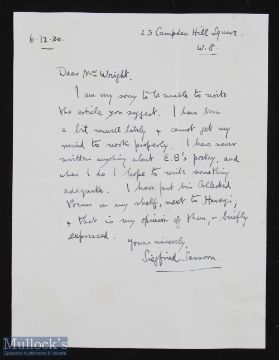 6.12.20.
23 Campden Hill Square.
W.8.
Dear Mr Wright.
I am very sorry to be unable to write
the article you suggest. I have been
a bit unwell lately & cannot get my
mind to work properly. I have never
written anything about E.B's poetry, and
when I do I hope to write something
adequate. I have put his Collected
Poems on my shelf, next to Hardy,
& that is my opinion of them, – briefly
expressed.
Yours sincerely,
Siegfried Sassoon
Mullock's